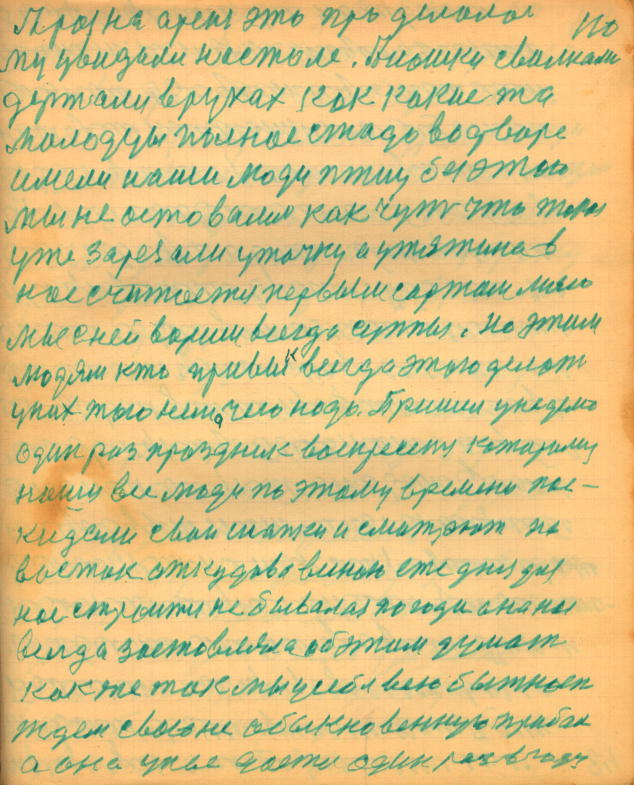 110
му увидели на столе. Вилошки с вилками
держали в руках как какие та
молодцы полное стадо во дворе
имели наши люди птиц без этого
мы не оставались как чуть что
уже зарезали уточку а утятина в
нас считается первым сортом мясо
мы с ней варим всегда суппы. Но этим
людям кто привык всегда этого делать
у них того нет, чего надо. Пришли у неделю
один раз праздник воскресения которому
наши все люди по этому времени пос-
кидали свои шапки и смотрют на
восток откудова в
нас строшки не бывалая погода она нас
всегда заставляла об этом думать
как же так мы у себя всю бытность
ждем свою не обыкновенную прибыль
а она у нас дается один раз в году